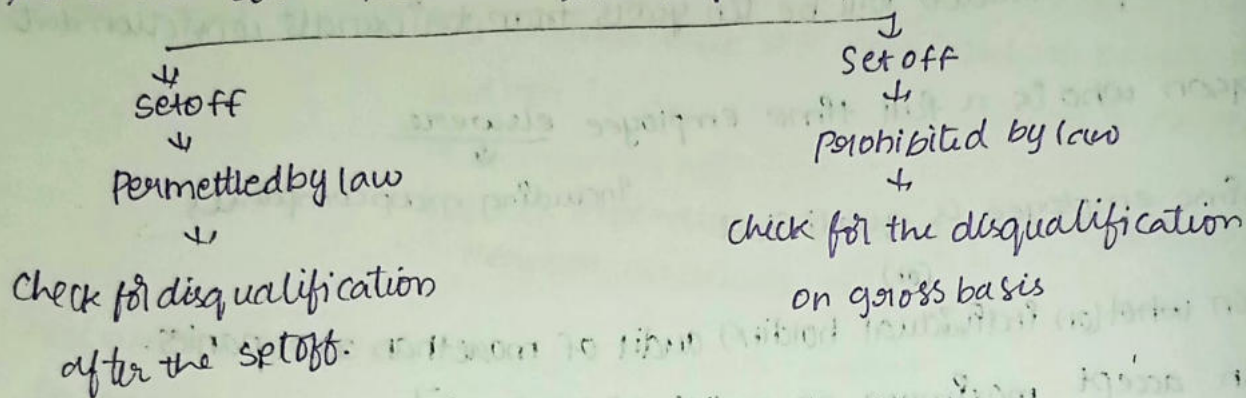 Setoff
Permettled by law
Check for disqualification
after the setoff.
Set off
Prohibited by law
Chick for the disqualification
on gross basis